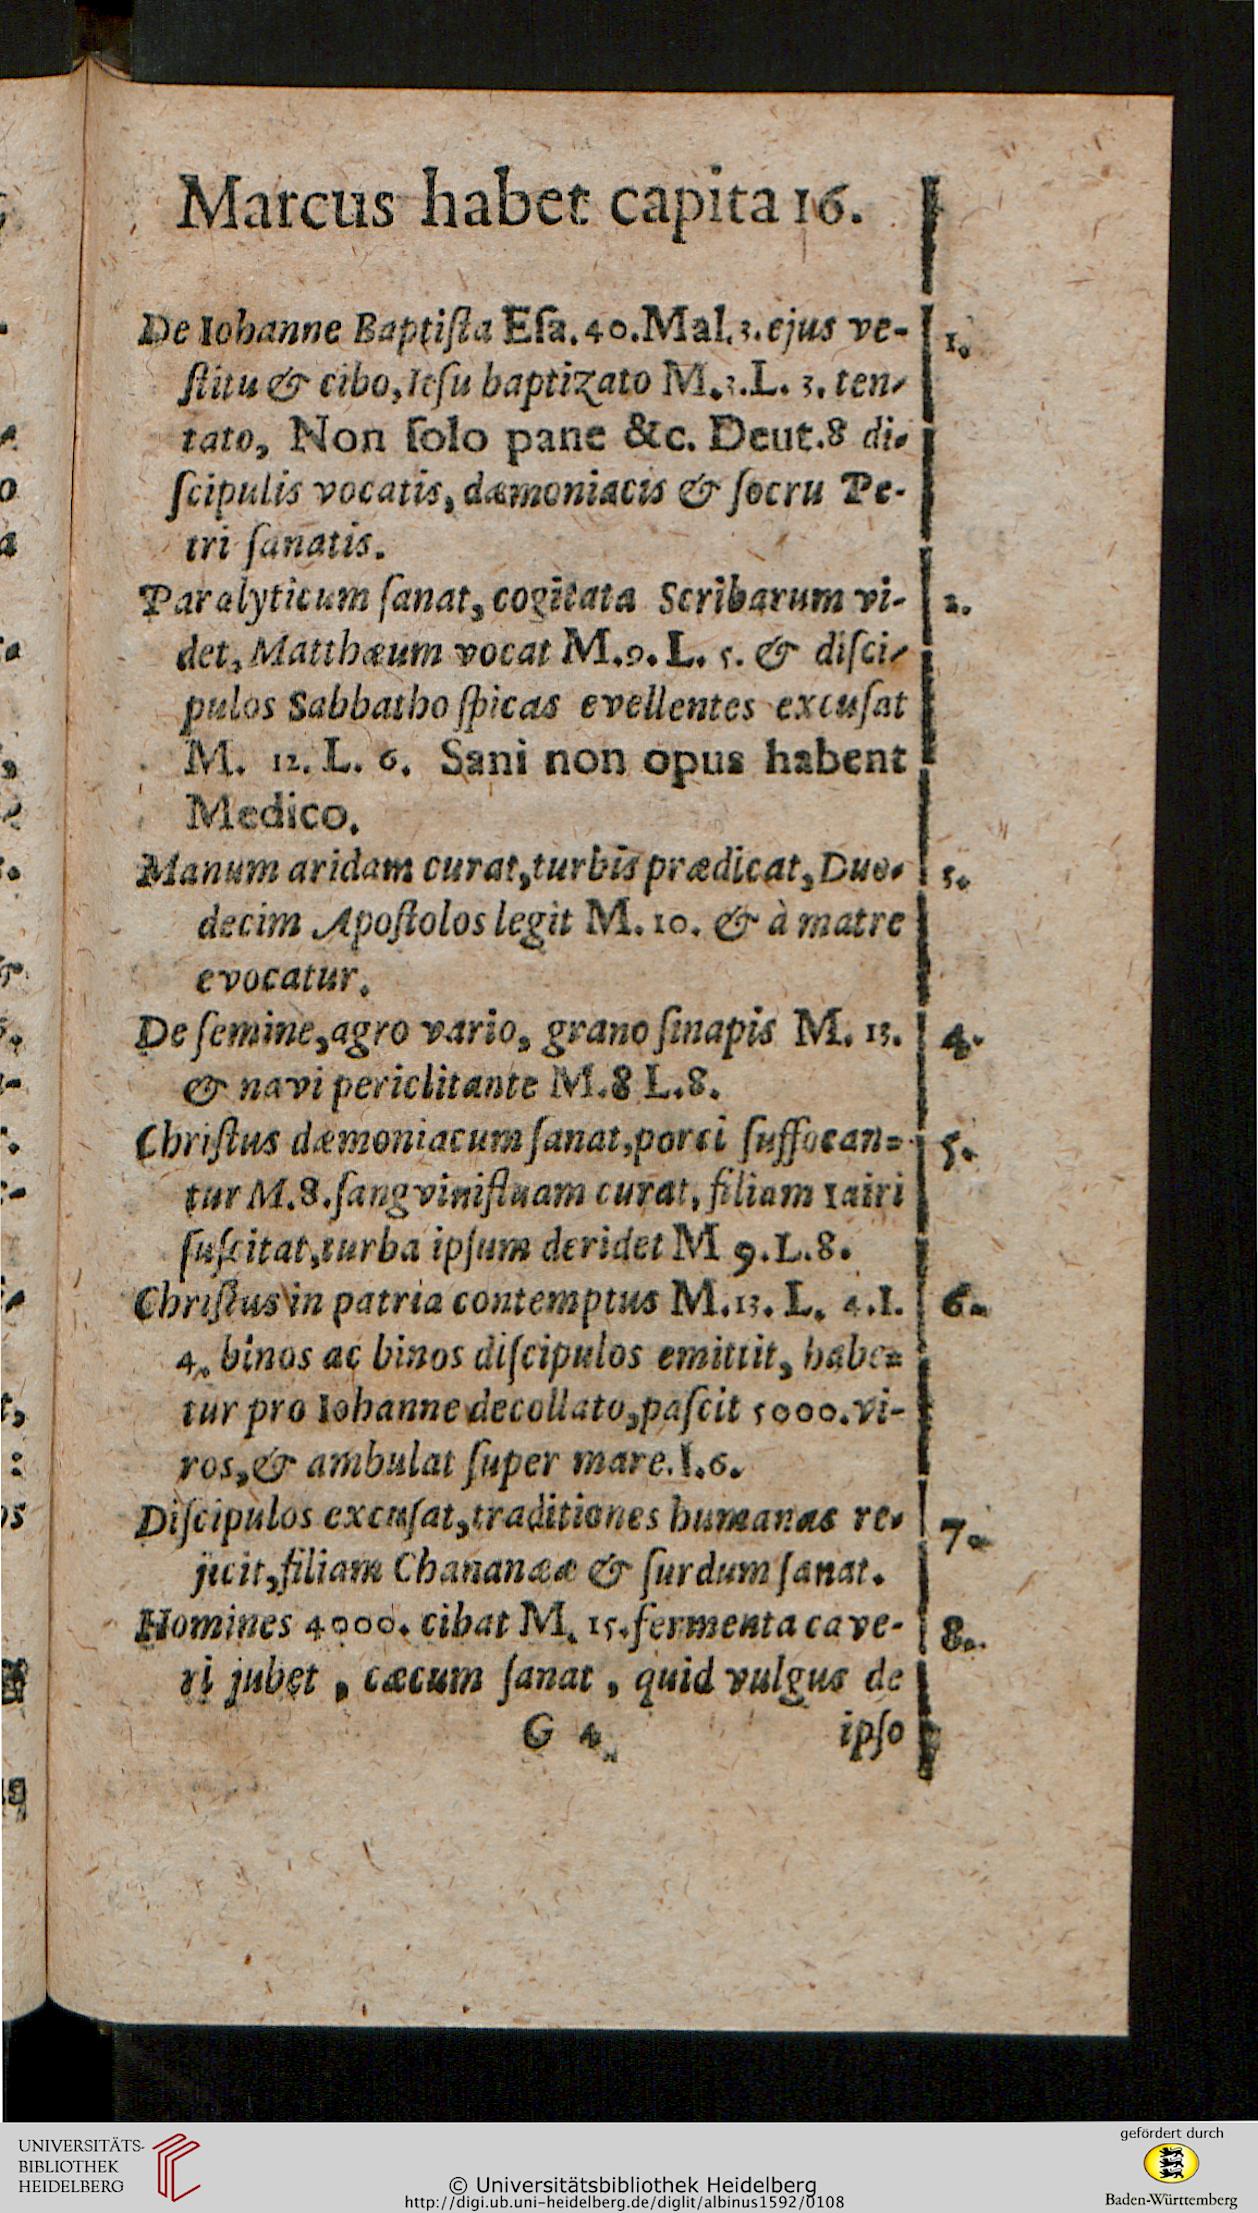 Marcus habet capita 16.
De Iohanne Baptiſta Eſa. 40. Mal. 3. ejus ve- 1.
ſtitu & cibo, Ieſu baptizato M. 3. L. 3. ten-
tato, Non ſolo pane &c. Deut. 8 di-
ſcipulis vocatis, dæmoniacis & ſocru Pe-
tri ſanatis.
Paralyticum ſanat, cogitata Scribarum vi- 2.
det, Matthæum vocat M. 9. L. 5. & diſci-
pulos Sabbatho ſpicas evellentes excuſat
M. 12. L. 6. Sani non opus habent
Medico.
Manum aridam curat, turbis prædicat, Duo- 3.
decim Apoſtolos legit M. 10. & à matre
evocatur.
De ſemine, agro vario, grano ſinapis M. 13. 4.
& navi periclitante M. 8 L. 8.
Chriſtus dæmoniacum ſanat, porci ſuffocan= 5.
tur M. 8. ſangvinifluam curat, filiam Iairi
ſuſcitat, turba ipſum deridet M 9. L. 8.
Chriſtus in patria contemptus M. 13. L. 4. I. 6.
4. binos ac binos diſcipulos emittit, habe=
tur pro Iohanne decollato, paſcit 5000. vi-
ros, & ambulat ſuper mare. I. 6.
Diſcipulos excuſat, traditiones humanas re- 7.
jicit, filiam Chananææ & ſurdum ſanat.
Homines 4000. cibat M. 15. fermenta cave- 8.
ri jubet, cæcum ſanat, quid vulgus de
G 4 ipſo
UNIVERSITÄTS-
BIBLIOTHEK
HEIDELBERG
© Universitätsbibliothek Heidelberg
http://digi.ub.uni-heidelberg.de/diglit/albinus1592/0108
gefördert durch
Baden-Württemberg